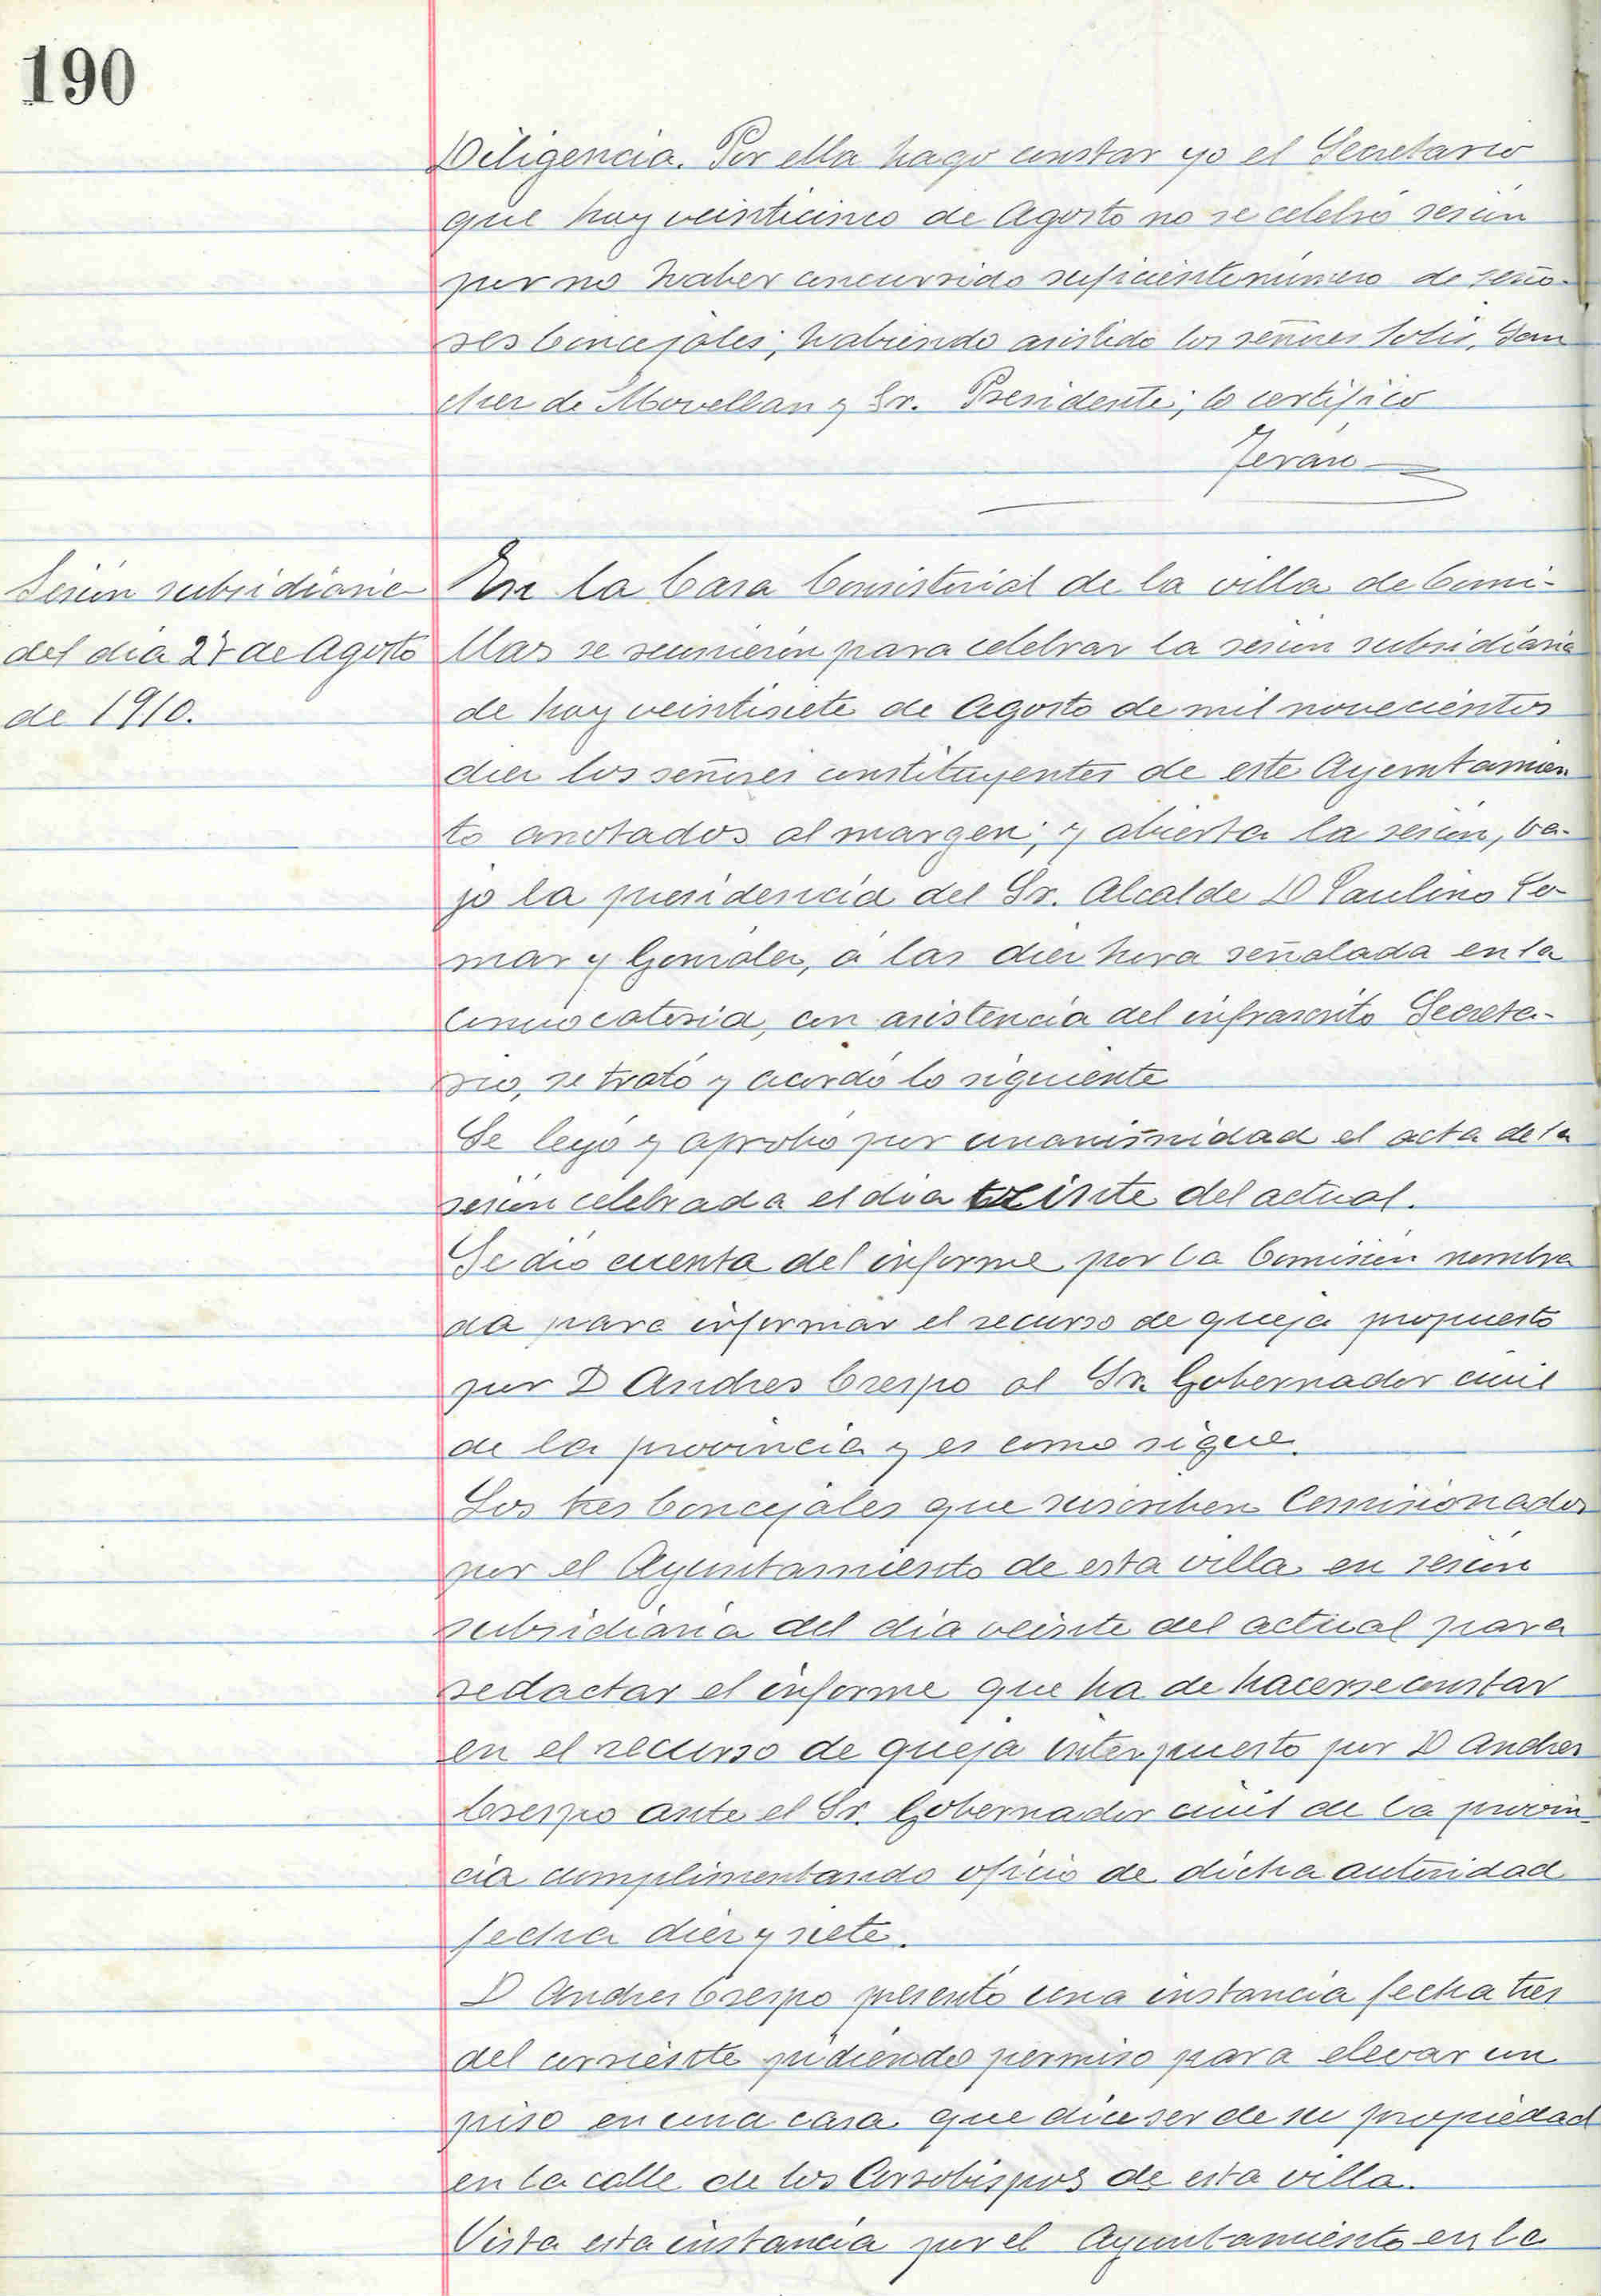 190
Diligencia. Por ella hago constar yo el Secretario
que hoy veinticinco de Agosto no se celebró sesión
por no haber concurrido suficiente número de seño-
res Concejales; habiendo asistido los señores Solis, San
chez de Movellan y Sr. Presidente; lo certifico
Terán
Sesión subsidiaria
del dia 27 de Agosto
de 1910.
En la Casa Consistorial de la villa de Comi-
llas se reunieron para celebrar la sesion subsidiaria
de hoy veintisiete de Agosto de mil novecientos
diez los señores constituyentes de este Ayuntamien
to anotados al margen; y abierta la sesión, ba-
jo la presidencia del Sr. Alcalde D Paulino
mar y González, á las diez hora señalada en la
Convocatoria, con asistencia del infrascrito Secreta-
rio, se trató y acordó lo siguiente
Se leyó y aprobó por unanimidad el acta de la
sesión celebrada el dia veinte del actual.
Se dió cuenta del informe por la Comisión nombra
da para informar el recurso de queja propuesto
por D Andres Crespo al Sr. Gobernador civil
de la provincia y es como sigue.
Los tres Concejales que suscriben Comisionados
por el Ayuntamiento de esta villa en sesión
subsidiaria del dia veinte del actual para
redactar el informe que ha de hacerse constar
en el recurso de queja interpuesto por D Andres
Crespo ante el Sr. Gobernador civil de la provin-
cia cumplimentando oficio de dicha autoridad
fecha diez y siete.
D Andres Crespo presentó una instancia fecha tres
del corriente pidiendo permiso para elevar un
piso en una casa que dice ser de su propiedad
en la calle de los Arzobispos de esta villa.
Vista esta instancia por el Ayuntamiento en la